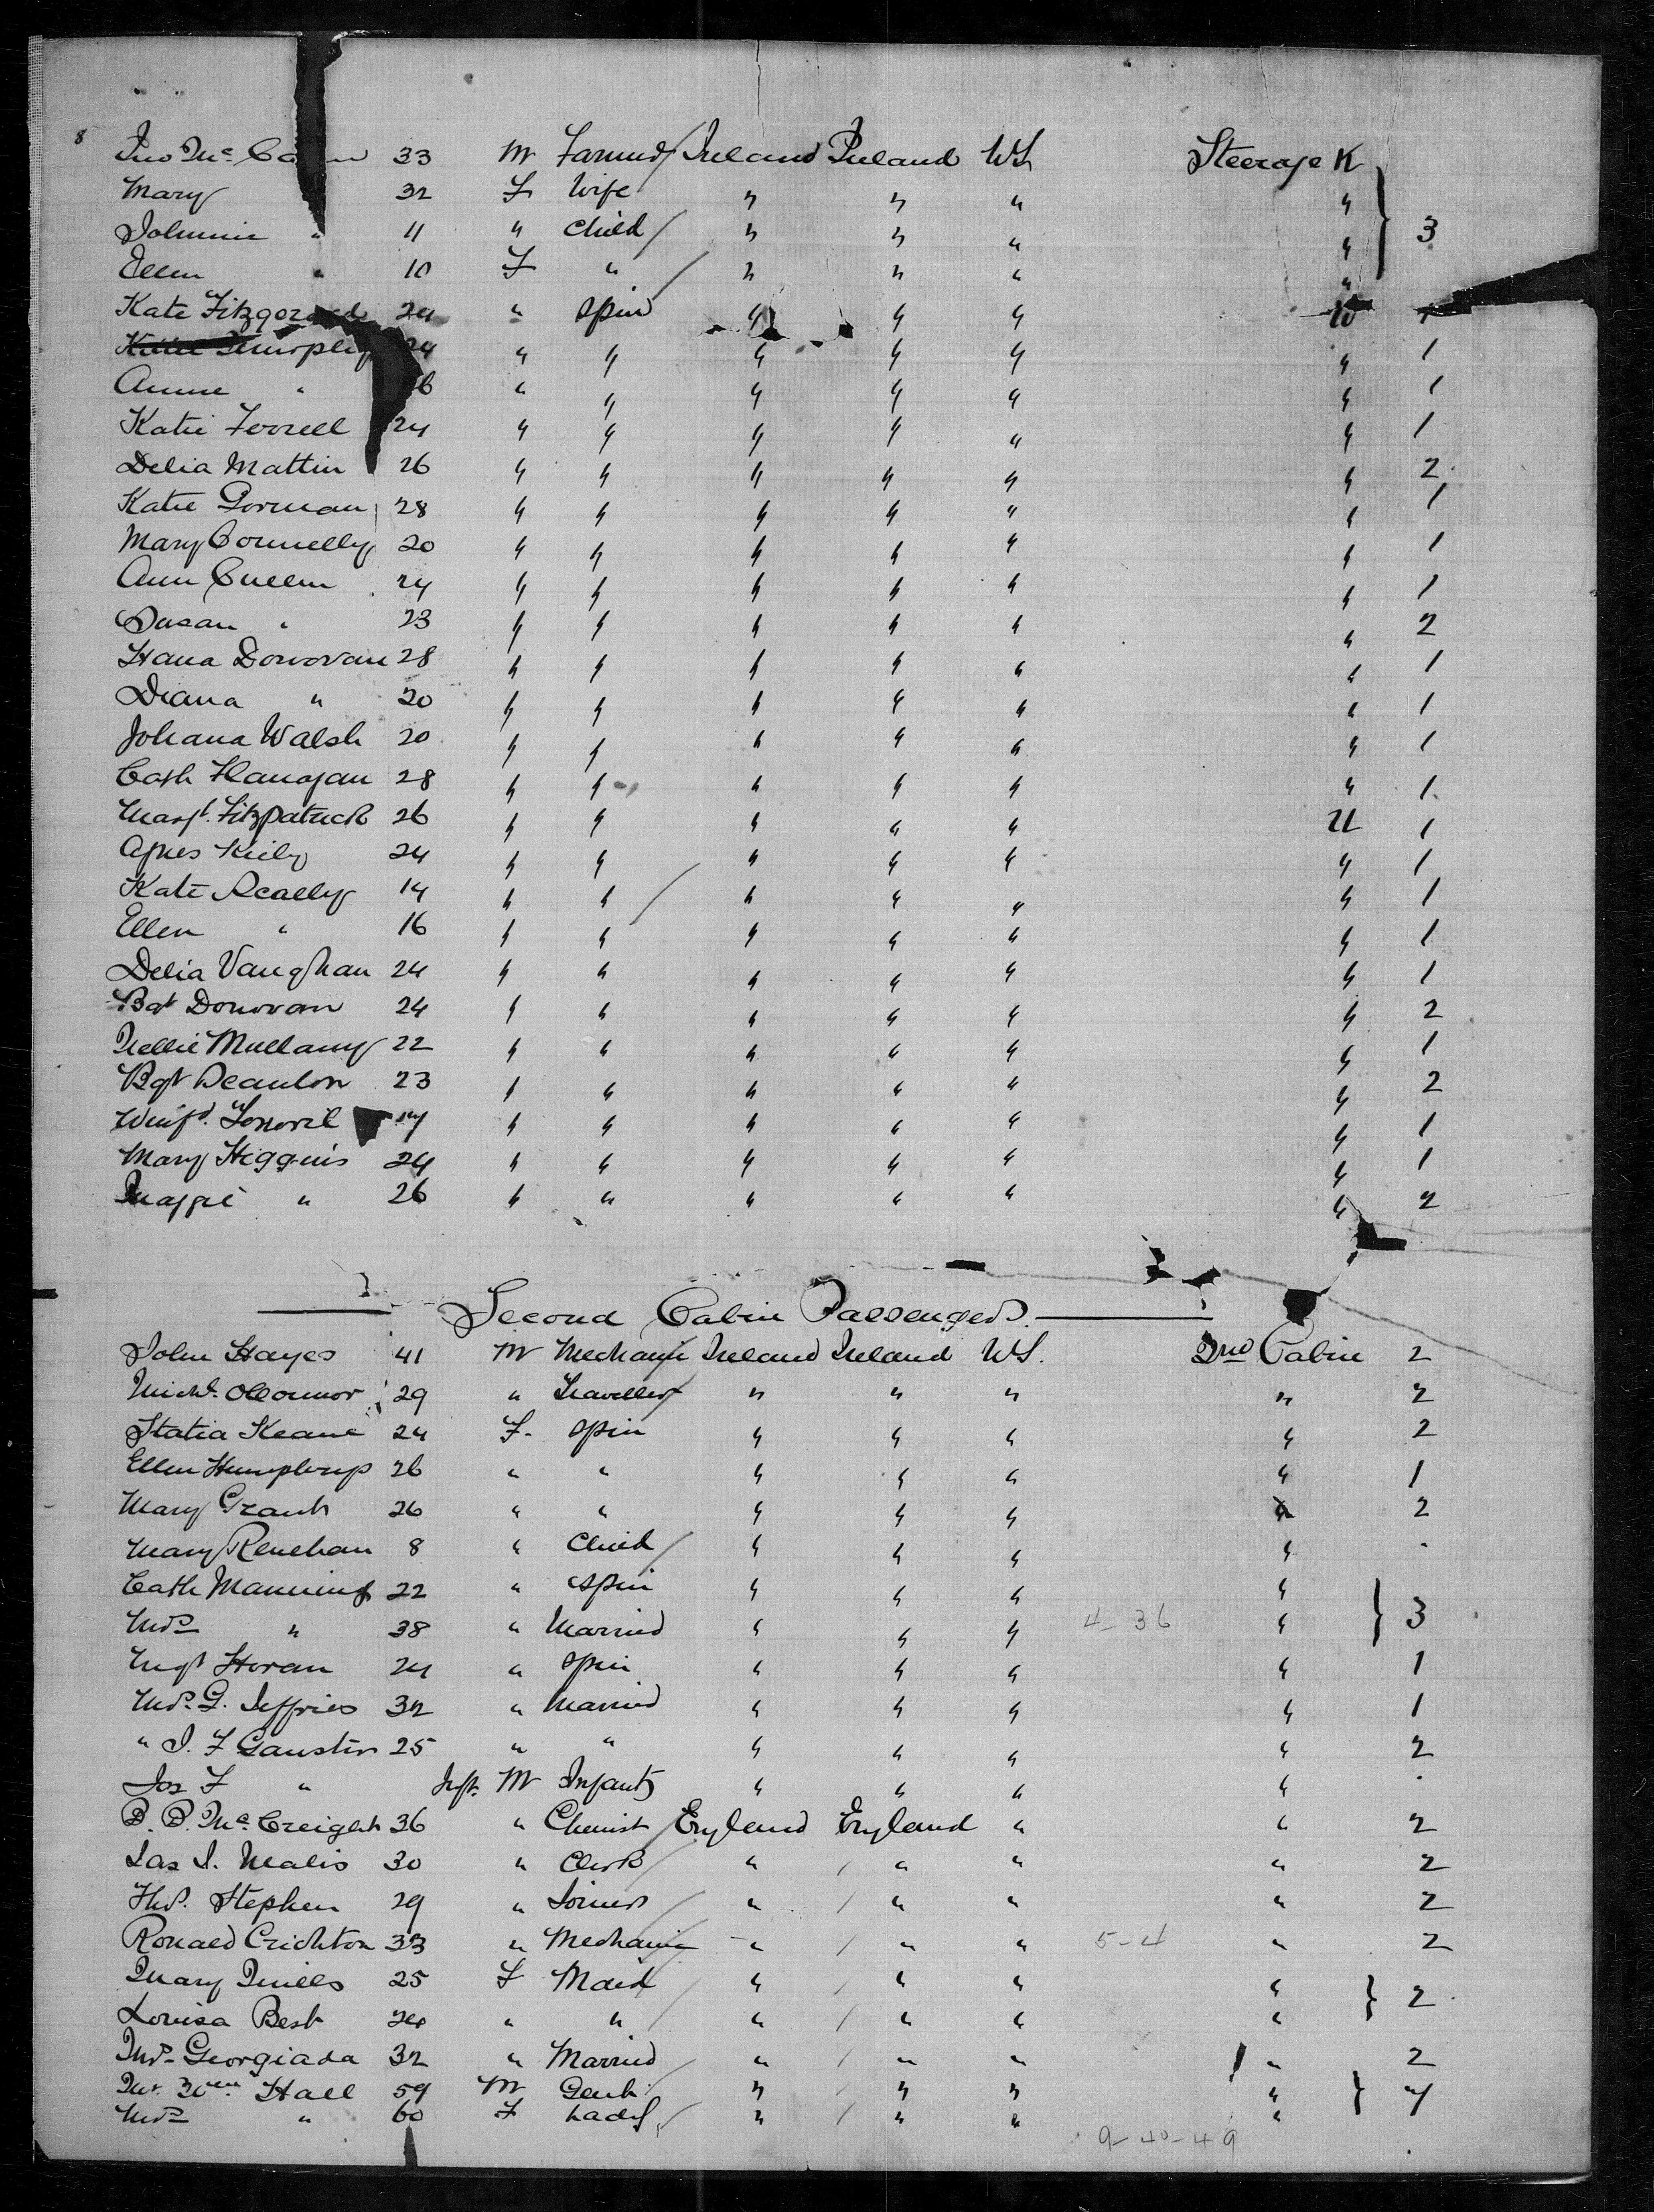 8
Jno Mc Ca 33 M Farmer Ireland Ireland US Steerage K
Mary 32 F Wife " " " "
Johnnie " 11 " Child " " " " 3
Ellen " 10 F " " " " "
Kate Fitzgerald 24 " Spin " " " 1
24 " " " " " " 1
Annie " 6 " " " " " " 1
Katie Ferrell 24 " " " " " " 1
Delia Mattin 26 " " " " " " 2
Katie Gorman 28 " " " " " " 1
Mary Connelly 20 " " " " " " 1
Ann Cullen 24 " " " " " " 1
Susan " 23 " " " " " " 2
Hana Donovan 28 " " " " " " 1
Diana " 20 " " " " " " 1
Johana Walsh 20 " " " " " " 1
Cath Flanagan 28 " " " " " " 1
Margt. Fitzpatrick 26 " " " " " U 1
Agnes Kiely 24 " " " " " " 1
Kate Scally 14 " " " " " " 1
Ellen " 16 " " " " " " 1
Delia Vaughan 24 " " " " " " 1
Bgt Donovan 24 " " " " " " 2
Nellie Mullany 22 " " " " " " 1
Bgt Scanlon 23 " " " " " " 2
Winfd. 17 " " " " " " 1
Mary Higgins 24 " " " " " " 1
Maggie " 26 " " " " " " 2
Second Cabin Passengers.
John Hayes 41 M Mechanic Ireland Ireland US. 2nd Cabin 2
Michl. OConnor 29 " Traveller " " " " 2
Statia Keane 24 F. Spin " " " " 2
Ellen Humphreys 26 " " " " " " 1
Mary Grant 26 " " " " " " 2
Mary Renehan 8 " Child " " " "
Cath Manning 22 " Spin " " " "
Mrs " 38 " Married " " " 4-36 " 3
Mgt Horan 24 " Spin " " " " 1
Mrs. G. Jeffries 32 " Married " " " " 1
" J. F Gaustin 25 " " " " " " 2
Jos F " Inft. M Infant " " " "
B. B. Mc Creight 36 " Chemist England England " " 2
Jas J. Malis 30 " Clerk " " " " 2
Thos. Stephen 29 " Joiner " " " " 2
Ronald Crichton 33 " Mechanic " " " 5-4 " 2
Mary Mills 25 F Maid " " " "
Louisa Best 24 " " " " " " 2
Mrs. Georgiada 32 " Married " " " " 2
Mr. Wm Hall 59 M Gent. " " " "
Mrs " 60 F Lady " " " "
9-40-49